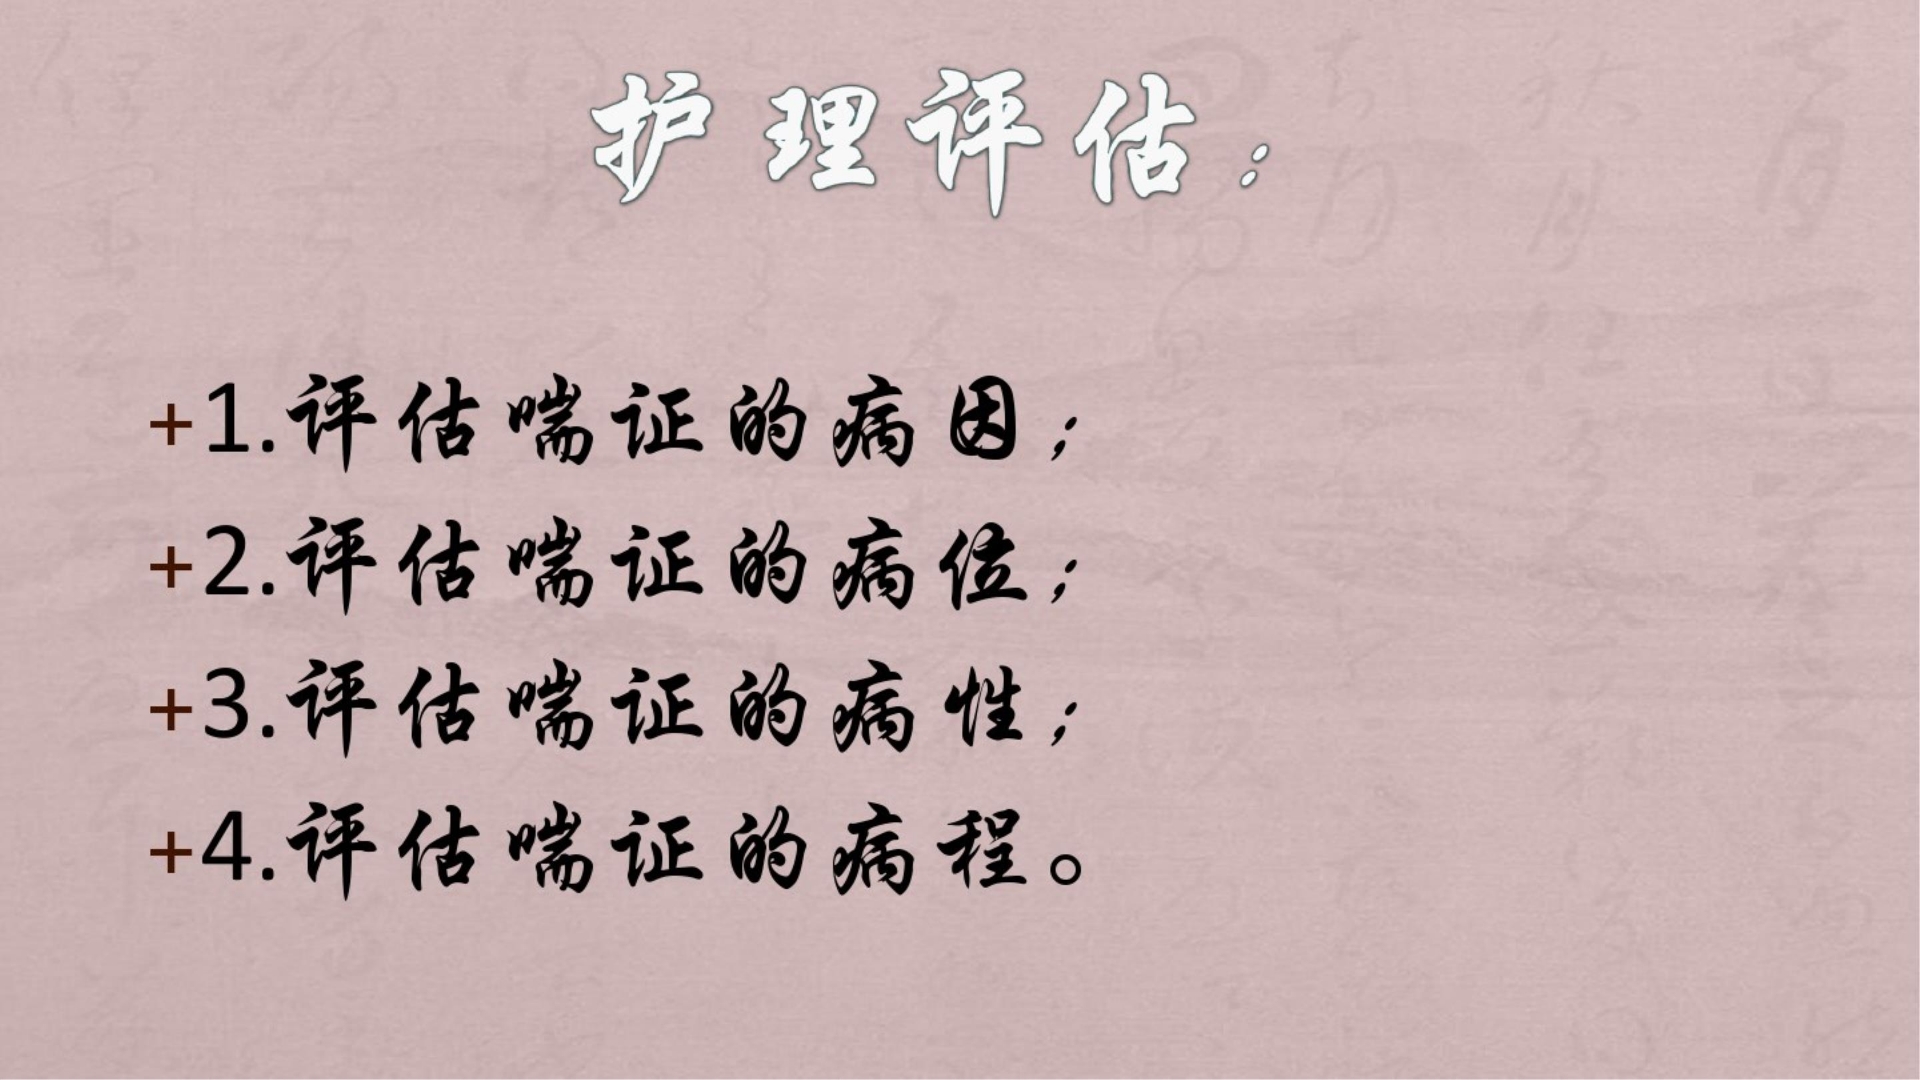 护理评估：
+1.评估喘证的病因；
+2.评估喘证的病位；
+3.评估喘证的病性；
+4.评估喘证的病程。